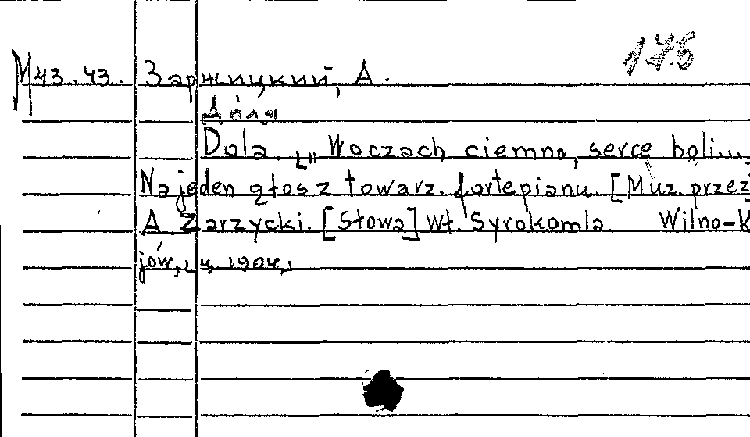 175
М43.43. Заржицкий, А.
Доля
Dola. „Woczach ciemno, serce boli...
Na jeden głos z towarz. fortepianu. [Muz. przez]
A. Zarzycki. [Słowa] Wł. Syrokomla. Wilno-K
jów,